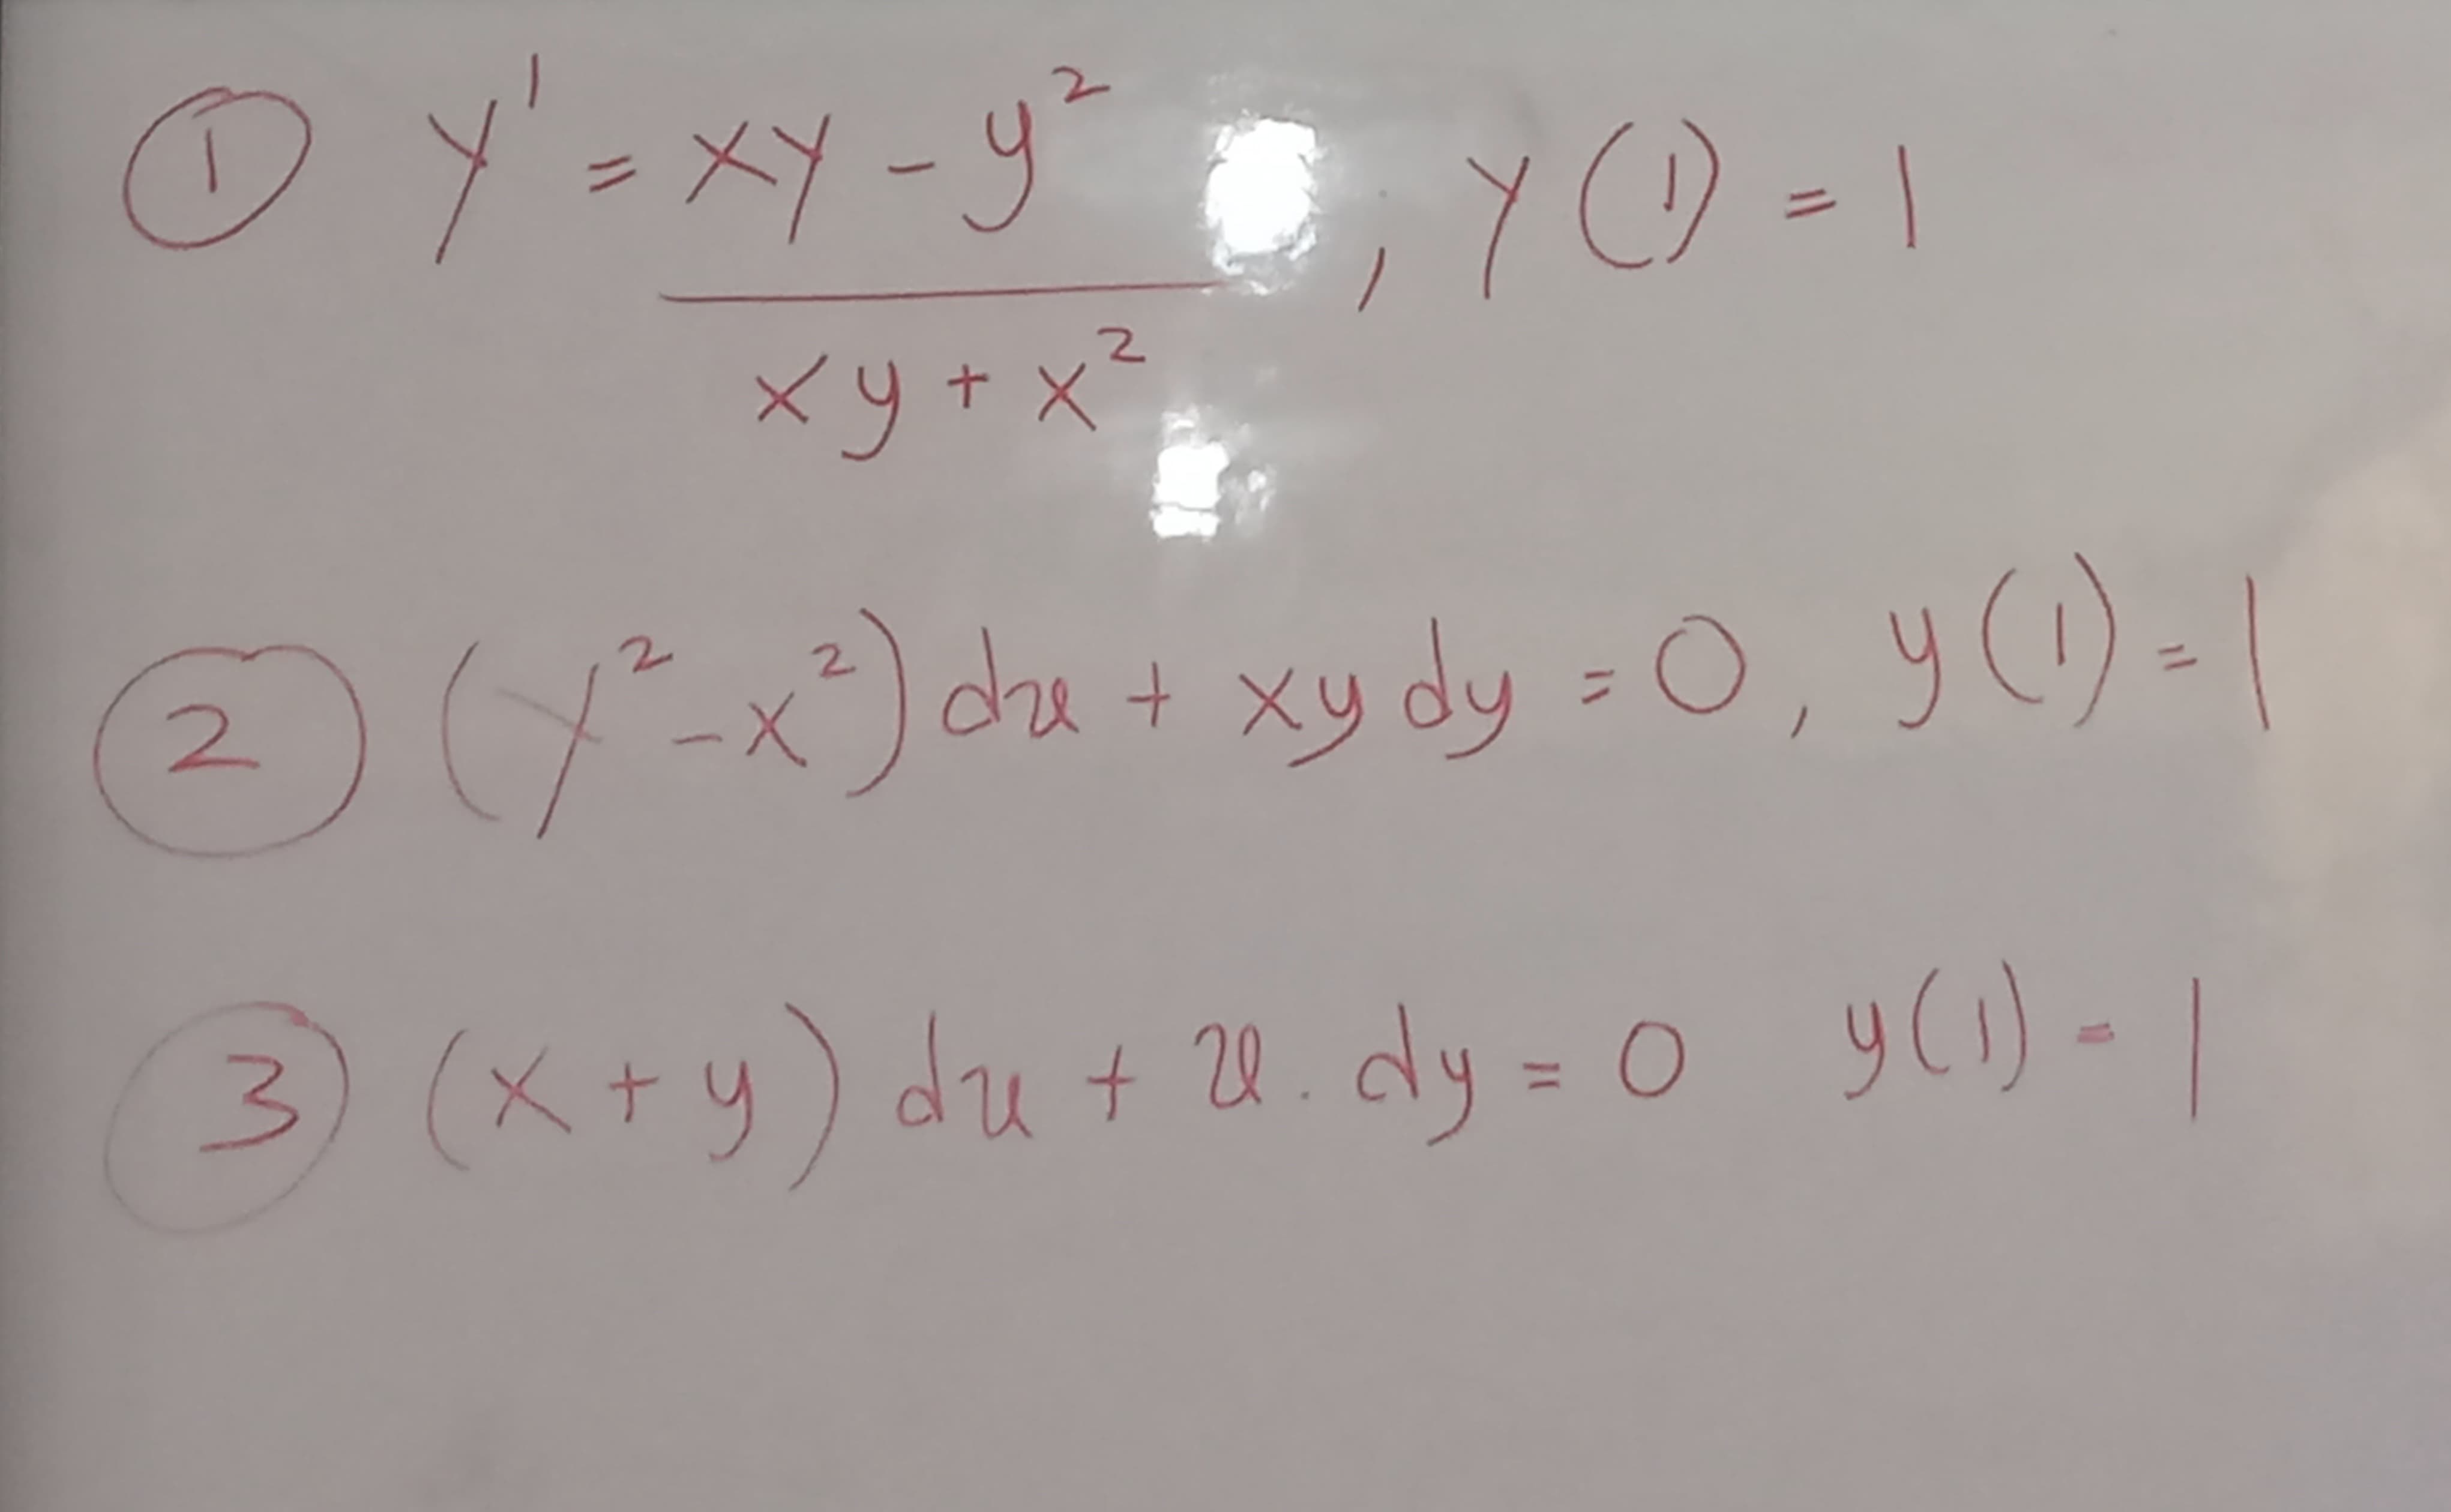 ① y' = xy - y² / xy + x² , y(1) = 1
② (y² - x²) dx + xy dy = 0, y(1) = 1
③ (x + y) dx + x . dy = 0 y(1) = 1